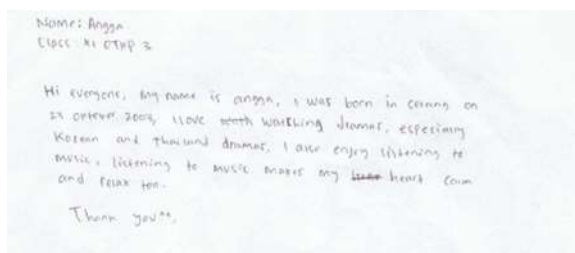 Name: Angga
Class: XI OTKP 3
Hi everyone, my name is angga, I was born in cerang on
october 2003, I love watching dramas, especially
Korean and thailand dramas, I also enjoy listening to
music, listening to music makes my heart calm
and relax too.
Thank you^^,